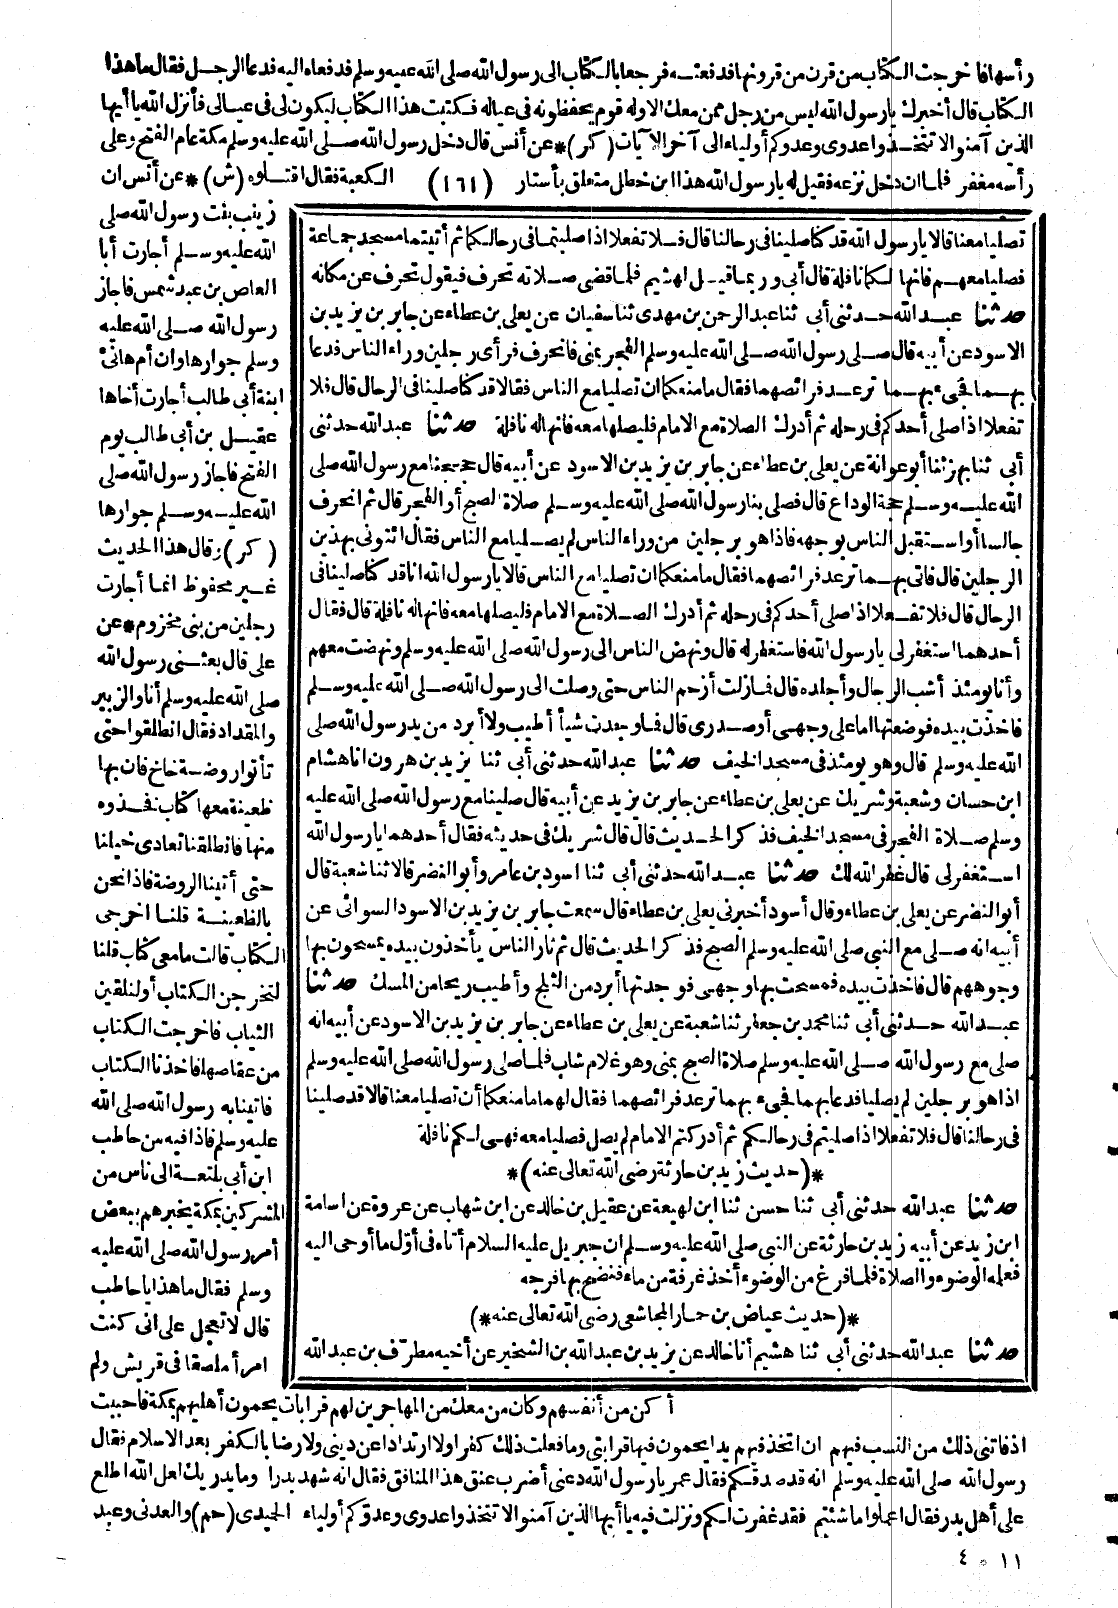 رأسها فاخرجت الكتاب من قرن من قرونها فدفعته فرجعا بالكتاب الى رسول الله صلى الله عليه وسلم فدفعاه اليه فدعا الرجل فقال ما هذا
الكتاب قال أخبرك يارسول الله ليس من رجل ممن معك الا وله قوم يحفظونه فى عياله فكتبت هذا الكتاب ليكون لى فى عيالى فأنزل الله ياأيها
الذين آمنوا لا تتخذوا عدوى وعدوكم أولياء الى آخر الآيات (كر)* عن أنس قال دخل رسول الله صلى الله عليه وسلم مكة عام الفتح وعلى
رأسه مغفر فلما ان دخل نزعه فقيل له يارسول الله هذا ابن خطل متعلق بأستار (١٦١) الكعبة فقال اقتلوه (ش)* عن أنس ان
زينب بنت رسول الله صلى
الله عليه وسلم أجارت أبا
العاص بن عبد شمس فاجاز
رسول الله صلى الله عليه
وسلم جوارها وان أم هانئ
ابنة أبى طالب أجارت أخاها
عقيل بن أبى طالب يوم
الفتح فاجاز رسول الله صلى
الله عليه وسلم جوارها
(كر) وقال هذا الحديث
غير محفوظ انما أجارت
رجلين من بنى مخزوم* عن
على قال بعثنى رسول الله
صلى الله عليه وسلم أنا والزبير
والمقداد فقال انطلقوا حتى
تأتوا روضة خاخ فان بها
ظعينة معها كتاب فخذوه
منها فانطلقنا تعادى خيلنا
حتى أتينا الروضة فاذا نحن
بالظعينة قلنا اخرجى
الكتاب قالت ما معى كتاب قلنا
لتخرجن الكتاب أو لنلقين
الثياب فاخرجت الكتاب
من عقاصها فاخذنا الكتاب
فاتينا به رسول الله صلى الله
عليه وسلم فاذا فيه من حاطب
ابن أبى بلتعة الى ناس من
المشركين بمكة يخبرهم ببعض
أمر رسول الله صلى الله عليه
وسلم فقال ما هذا ياحاطب
قال لا تعجل على انى كنت
امرأ ملصقا فى قريش ولم
تصليا معنا قالا يارسول الله قد كنا صلينا فى رحالنا قال فلا تفعلا اذا صليتما فى رحالكما ثم أتيتما مسجد جماعة
فصليا معهم فانها لكما نافلة قال أبى وربما قيل لهشيم فلما قضى صلاته تحرف فيقول تحرف عن مكانه
حدثنا عبد الله حدثنى أبى ثنا عبد الرحمن بن مهدى ثنا سفيان عن يعلى بن عطاء عن جابر بن يزيد بن
الاسود عن أبيه قال صلى رسول الله صلى الله عليه وسلم الفجر بمنى فانحرف فرأى رجلين وراء الناس فدعا
بهما فجىء بهما ترعد فرائصهما فقال ما منعكما ان تصليا مع الناس فقالا قد كنا صلينا فى الرحال قال فلا
تفعلا اذا صلى أحدكم فى رحله ثم أدرك الصلاة مع الامام فليصلها معه فانها له نافلة حدثنا عبد الله حدثنى
أبى ثنا بهز ثنا أبو عوانة عن يعلى بن عطاء عن جابر بن يزيد بن الاسود عن أبيه قال حججنا مع رسول الله صلى
الله عليه وسلم حجة الوداع قال فصلى بنا رسول الله صلى الله عليه وسلم صلاة الصبح أو الفجر قال ثم انحرف
جالسا أو استقبل الناس بوجهه فاذا هو برجلين من وراء الناس لم يصليا مع الناس فقال ائتونى بهذين
الرجلين قال فاتى بهما ترعد فرائصهما فقال ما منعكما ان تصليا مع الناس قالا يارسول الله انا قد كنا صلينا فى
الرحال قال فلا تفعلا اذا صلى أحدكم فى رحله ثم أدرك الصلاة مع الامام فليصلها معه فانها له نافلة قال فقال
أحدهما استغفر لى يارسول الله فاستغفر له قال ونهض الناس الى رسول الله صلى الله عليه وسلم ونهضت معهم
وأنا يومئذ أشب الرجال وأجلده قال فما زلت أزحم الناس حتى وصلت الى رسول الله صلى الله عليه وسلم
فاخذت بيده فوضعتها اما على وجهى أو صدرى قال فما وجدت شيأ أطيب ولا أبرد من يد رسول الله صلى
الله عليه وسلم قال وهو يومئذ فى مسجد الخيف حدثنا عبد الله حدثنى أبى ثنا يزيد بن هرون انا هشام
ابن حسان وشعبة وشريك عن يعلى بن عطاء عن جابر بن يزيد عن أبيه قال صلينا مع رسول الله صلى الله عليه
وسلم صلاة الفجر فى مسجد الخيف فذكر الحديث قال قال شريك فى حديثه فقال أحدهما يارسول الله
استغفر لى قال غفر الله لك حدثنا عبد الله حدثنى أبى ثنا اسود بن عامر وأبو النضر قالا ثنا شعبة قال
أبو النضر عن يعلى بن عطاء وقال أسود أخبرنى يعلى بن عطاء قال سمعت جابر بن يزيد بن الاسود السوائى عن
أبيه انه صلى مع النبى صلى الله عليه وسلم الصبح فذكر الحديث قال ثم ثار الناس يأخذون بيده يمسحون بها
وجوههم قال فاخذت بيده فمسحت بها وجهى فوجدتها أبرد من الثلج وأطيب ريحا من المسك حدثنا
عبد الله حدثنى أبى ثنا محمد بن جعفر ثنا شعبة عن يعلى بن عطاء عن جابر بن يزيد بن الاسود عن أبيه انه
صلى مع رسول الله صلى الله عليه وسلم صلاة الصبح بمنى وهو غلام شاب فلما صلى رسول الله صلى الله عليه وسلم
اذا هو برجلين لم يصليا فدعا بهما فجىء بهما ترعد فرائصهما فقال لهما ما منعكما أن تصليا معنا قالا قد صلينا
فى رحالنا قال فلا تفعلا اذا صليتم فى رحالكم ثم أدركتم الامام لم يصل فصليا معه فهى لكم نافلة
*(حديث زيد بن حارثة رضى الله تعالى عنه)*
حدثنا عبد الله حدثنى أبى ثنا حسن ثنا ابن لهيعة عن عقيل بن خالد عن ابن شهاب عن عروة عن اسامة
ابن زيد عن أبيه زيد بن حارثة عن النبى صلى الله عليه وسلم ان جبريل عليه السلام أتاه فى أول ما أوحى اليه
فعلمه الوضوء والصلاة فلما فرغ من الوضوء أخذ غرفة من ماء فنضح بها فرجه
*(حديث عياض بن حمار المجاشعى رضى الله تعالى عنه)*
حدثنا عبد الله حدثنى أبى ثنا هشيم أنا خالد عن يزيد بن عبد الله بن الشخير عن أخيه مطرّف بن عبد الله
أكن من أنفسهم وكان من معك من المهاجرين لهم قرابات يحمون أهليهم بمكة فاحببت
اذ فاتنى ذلك من النسب فيهم ان اتخذ فيهم يدا يحمون فيها قرابتى وما فعلت ذلك كفرا ولا ارتدادا عن دينى ولا رضا بالكفر بعد الاسلام فقال
رسول الله صلى الله عليه وسلم انه قد صدقكم فقال عمر يارسول الله دعنى أضرب عنق هذا المنافق فقال انه شهد بدرا وما يدريك لعل الله اطلع
على أهل بدر فقال اعملوا ما شئتم فقد غفرت لكم ونزلت فيه ياأيها الذين آمنوا لا تتخذوا عدوى وعدوّكم أولياء الحيدى (حم) والعدنى وعبد
١١ * ٤